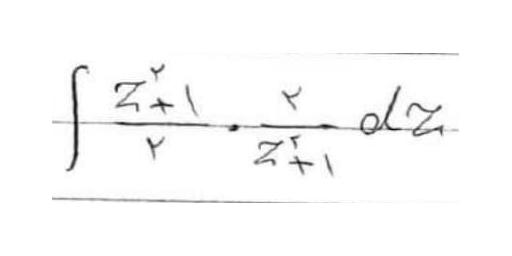 ∫ (z^۲+۱)/۲ · ۲/(z^۲+۱) dz